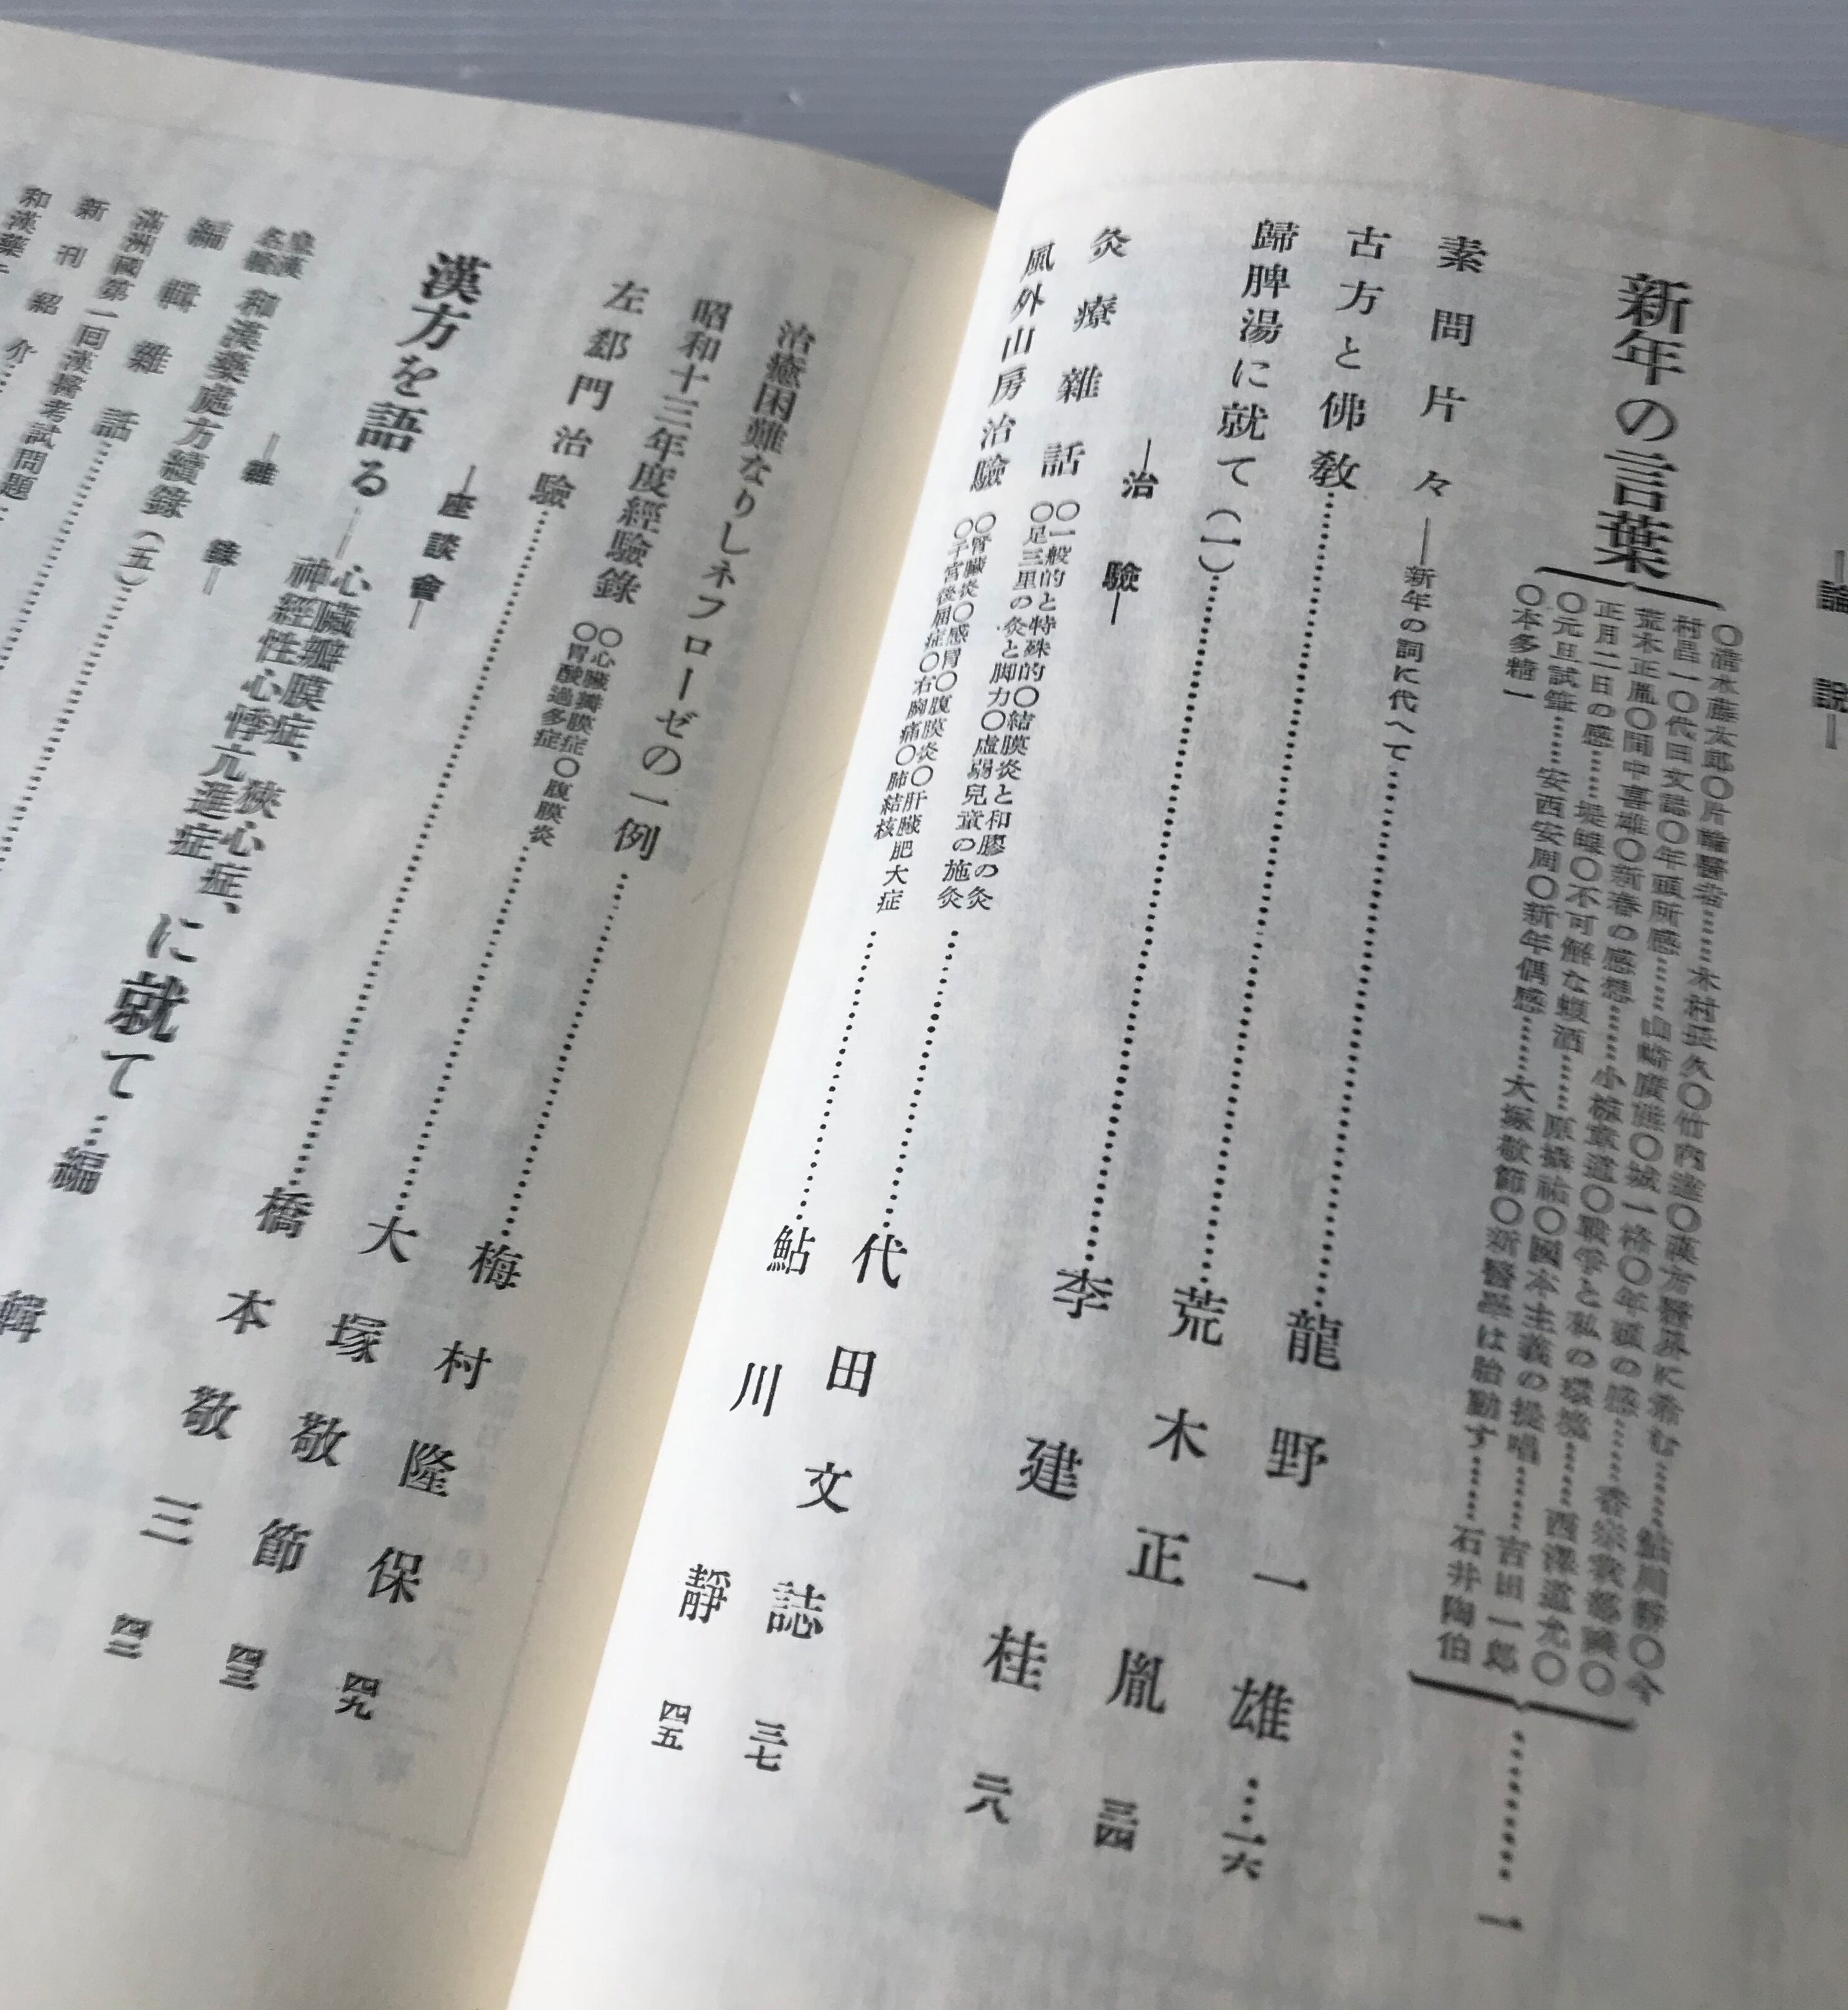 ―論説―
新年の言葉
〇清水藤太郎〇片輪醫者……木村長久〇竹内達〇漢方醫界に希む……鮎川靜〇今
村昌一〇代田文誌〇年頭所感……山崎廣 〇城一格〇年頭の感……
荒木正胤〇閑中喜雄〇新春の感想……小椋章道〇戰爭と私の環境……西澤道允〇
正月二日の感……堤 〇不可解な蝮酒……原 祐〇國本主義の提唱……吉田一郎
〇元旦試筆……安西安周〇新年偶感……大塚敬節〇新醫學は胎動す……石井陶伯
〇本多精一
……一
素問片々――新年の詞に代へて……龍野一雄……一六
古方と佛教……荒木正胤 三四
歸脾湯に就て(一)……李建桂 二八
―治驗―
灸療雜話
〇一般的と特殊的〇結膜炎と和膠の灸
〇足三里の灸と脚力〇虚弱兒童の施灸
……代田文誌 三七
風外山房治驗
〇腎臟炎〇感冒〇腹膜炎〇肝臟肥大症
〇子宮後屈症〇右胸痛〇肺結核
……鮎川靜 四五
治癒困難なりしネフローゼの一例……梅村隆保 四九
昭和十三年度經驗錄
〇心臟瓣膜症〇腹膜炎
〇胃酸過多症
……大塚敬節 四三
左郄門治驗……橋本敬三 四二
―座談會―
漢方を語る―心臟瓣膜症、狹心症、
神經性心悸亢進症、に就て…編輯
―雜錄―
皇漢
名醫
和漢藥處方續錄(五)……
編輯雜話……
滿洲國第一回漢醫考試問題
新刊紹介……
和漢藥